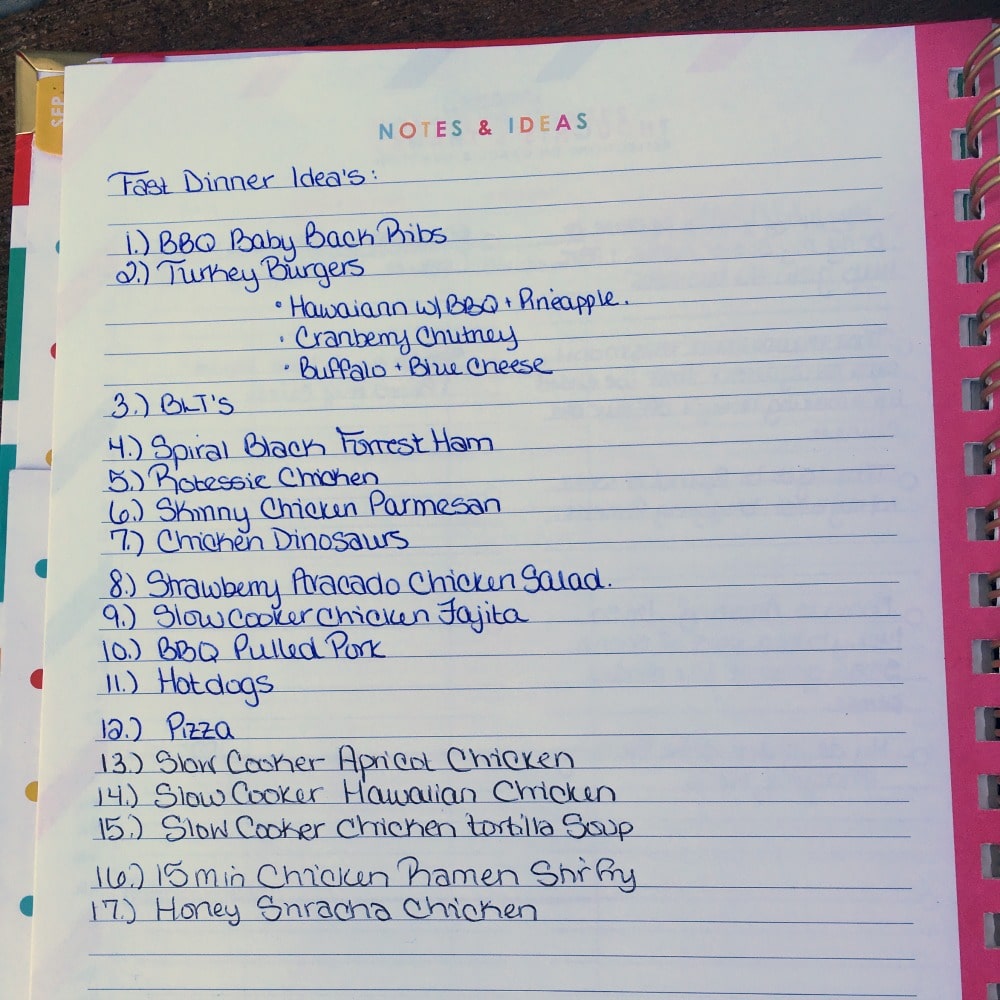 SEP
NOTES & IDEAS
Fast Dinner Idea's:
1.) BBQ Baby Back Ribs
2.) Turkey Burgers
• Hawaiann w/ BBQ + Pineapple.
• Cranberry Chutney
• Buffalo + Blue Cheese
3.) BLT's
4.) Spiral Black Forrest Ham
5.) Rotessie Chicken
6.) Skinny Chicken Parmesan
7.) Chicken Dinosaurs
8.) Strawberry Avacado Chicken Salad.
9.) Slow Cooker Chicken Fajita
10.) BBQ Pulled Pork
11.) Hotdogs
12.) Pizza
13.) Slow Cooker Apricot Chicken
14.) Slow Cooker Hawaiian Chicken
15.) Slow Cooker Chicken tortilla Soup
16.) 15 min Chicken Ramen Stirfry
17.) Honey Sriracha Chicken